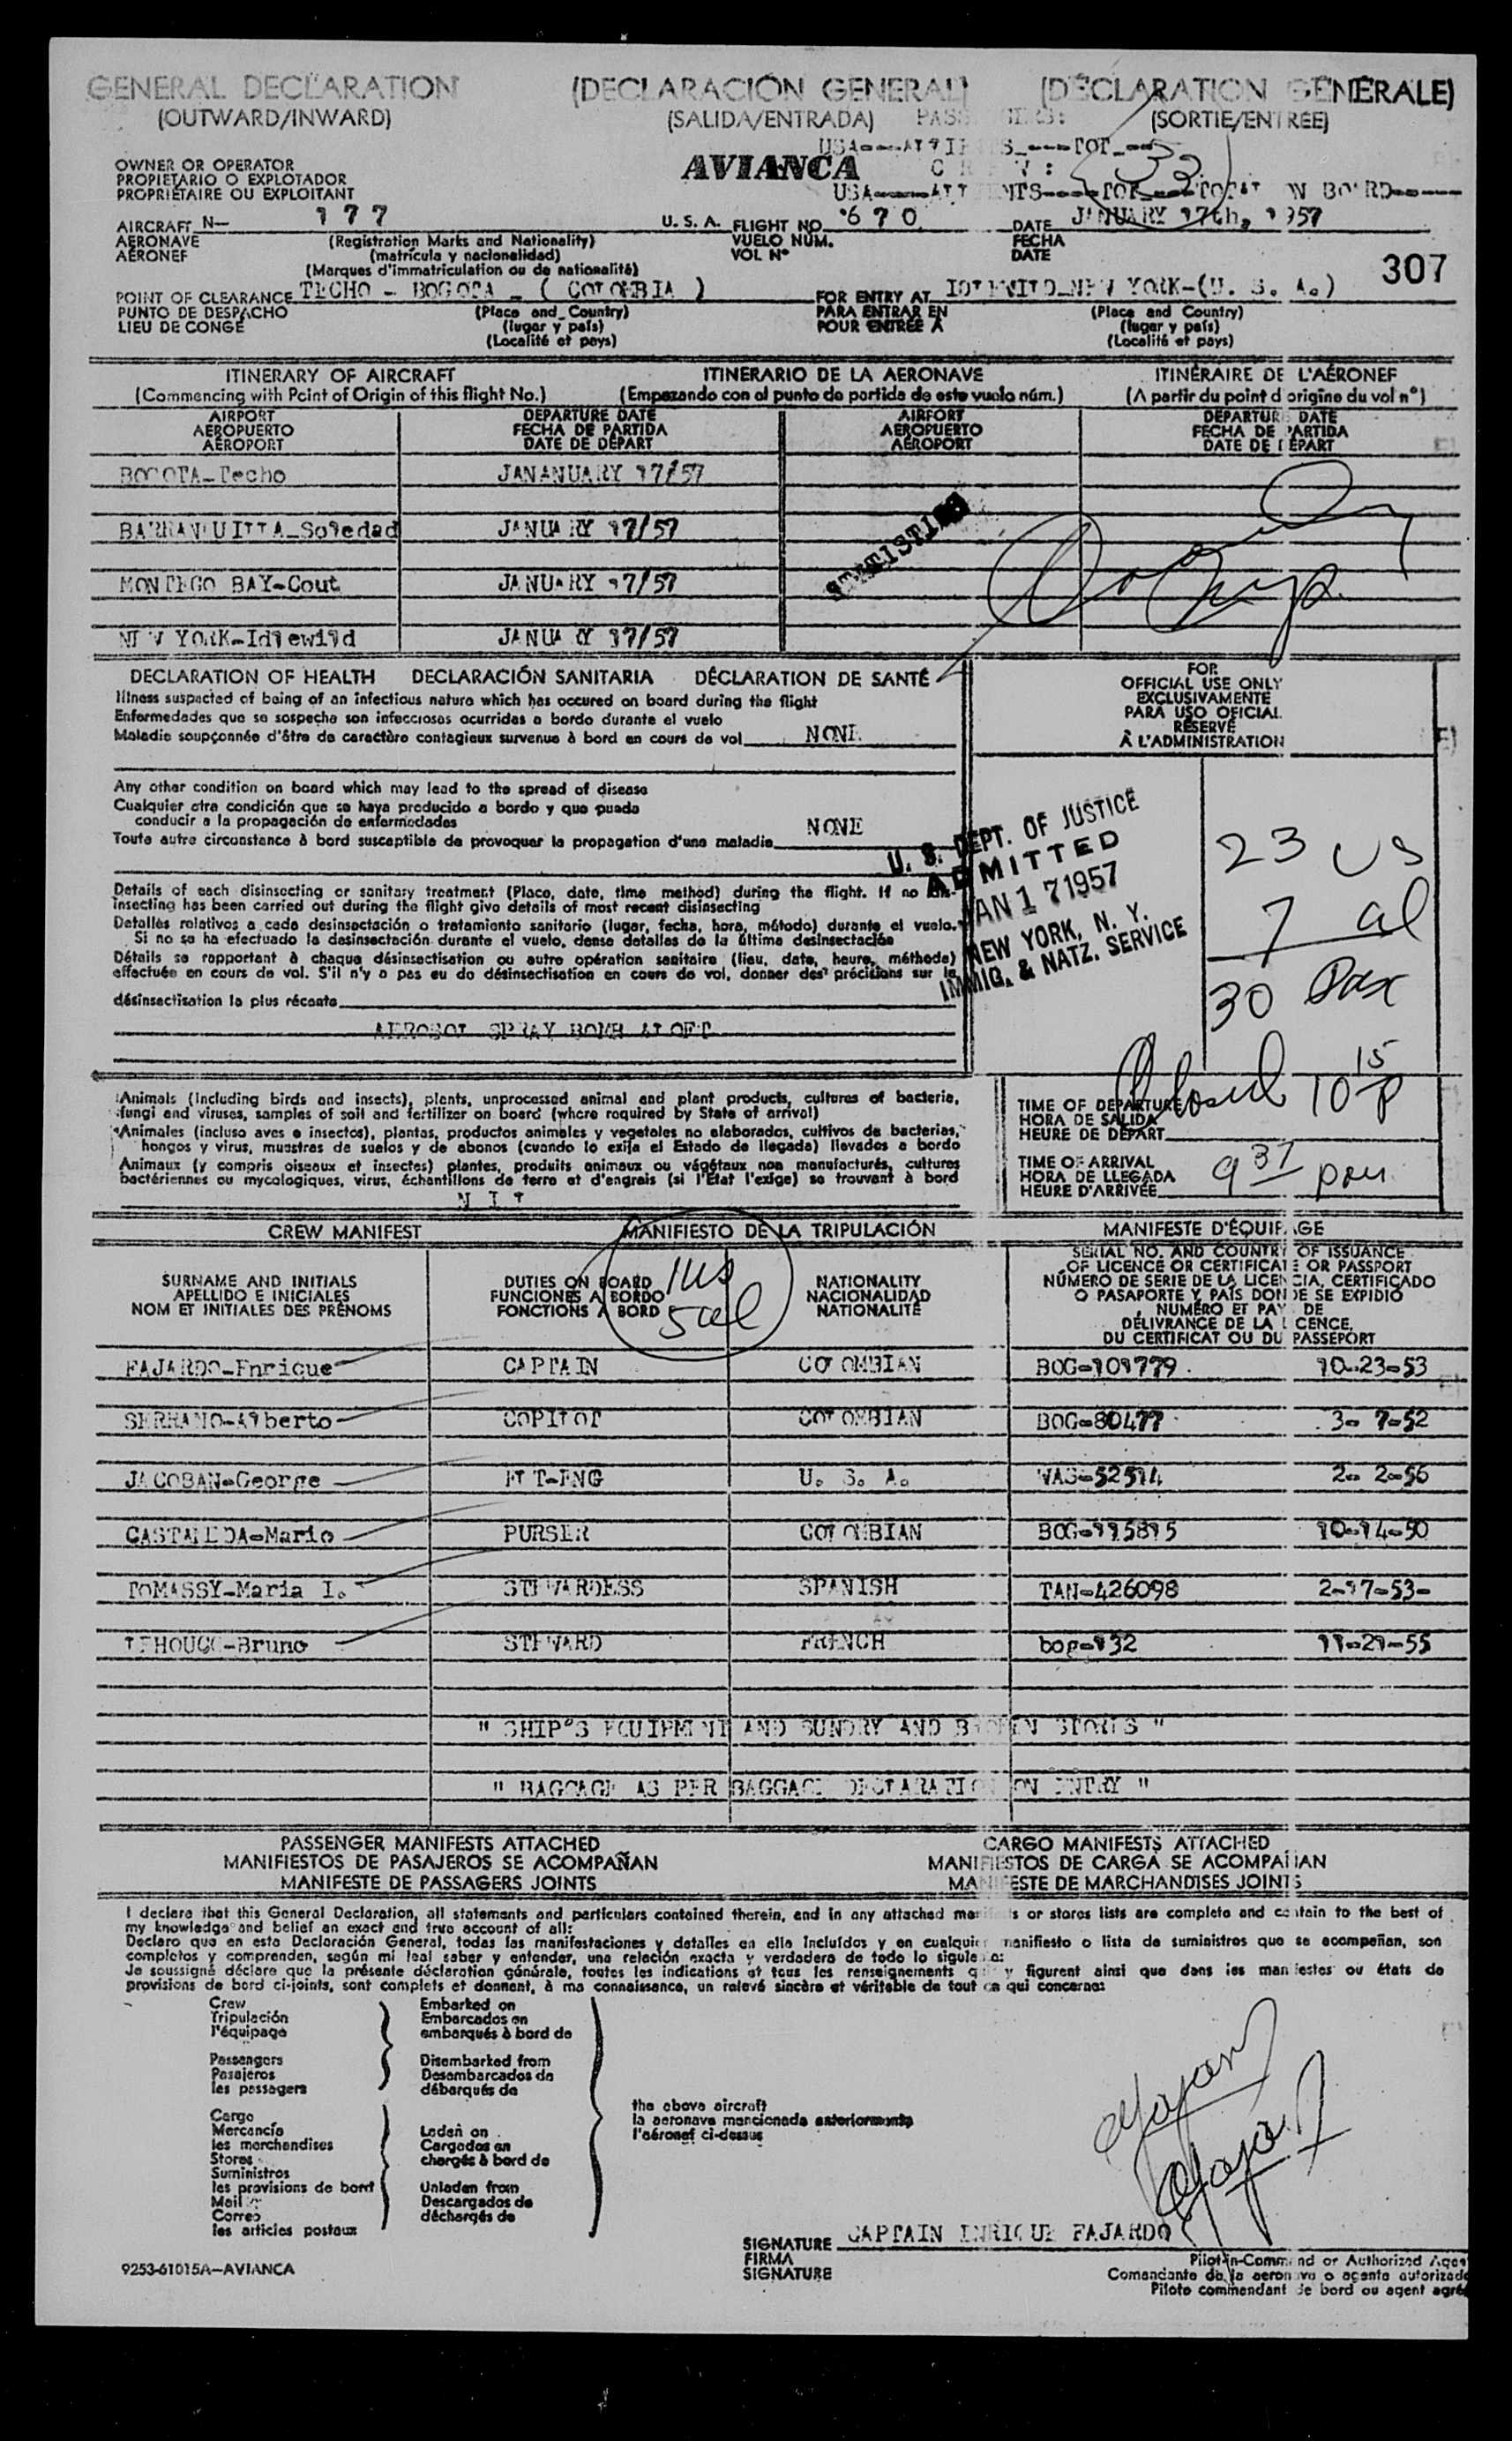 GENERAL DECLARATION (DECLARACIÓN GENERAL) (DÉCLARATION GÉNÉRALE)
(OUTWARD/INWARD) (SALIDA/ENTRADA) (SORTIE/ENTRÉE)
OWNER OR OPERATOR
PROPIETARIO O EXPLOTADOR
PROPRIÉTAIRE OU EXPLOITANT
AVIANCA
33
AIRCRAFT N- 177 U. S. A. FLIGHT NO. 670 DATE JANUARY 17th, 1957
AERONAVE (Registration Marks and Nationality) VUELO NÚM. FECHA
AÉRONEF (matrícula y nacionalidad) VOL Nº DATE
(Marques d'immatriculation ou de nationalité)
307
POINT OF CLEARANCE TECHO - BOGOTA - ( COLOMBIA ) FOR ENTRY AT IDLEWILD-NEW YORK-(U. S. A.)
PUNTO DE DESPACHO (Place and Country) PARA ENTRAR EN (Place and Country)
LIEU DE CONGÉ (lugar y país) POUR ENTRÉE À (lugar y país)
(Localité et pays) (Localité et pays)
ITINERARY OF AIRCRAFT ITINERARIO DE LA AERONAVE ITINÉRAIRE DE L'AÉRONEF
(Commencing with Point of Origin of this flight No.) (Empezando con el punto de partida de este vuelo núm.) (A partir du point d origine du vol nº)
AIRPORT DEPARTURE DATE AIRPORT DEPARTURE DATE
AEROPUERTO FECHA DE PARTIDA AEROPUERTO FECHA DE PARTIDA
AÉROPORT DATE DE DÉPART AÉROPORT DATE DE DÉPART
BOGOTA-Techo JANANUARY 17/57
BARRANQUILLA-Soledad JANUARY 17/57
MONTEGO BAY-Cout JANUARY 17/57
NEW YORK-Idlewild JANUARY 17/57
DECLARATION OF HEALTH DECLARACIÓN SANITARIA DÉCLARATION DE SANTÉ
Illness suspected of being of an infectious nature which has occured on board during the flight
Enfermedades que se sospecha son infecciosas ocurridas a bordo durante el vuelo
Maladie soupçonnée d'être de caractère contagieux survenue à bord en cours de vol NONE
FOR
OFFICIAL USE ONLY
EXCLUSIVAMENTE
PARA USO OFICIAL
RÉSERVÉ
À L'ADMINISTRATION
Any other condition on board which may lead to the spread of disease
Cualquier otra condición que se haya producido a bordo y que pueda
conducir a la propagación de enfermedades
Toute autre circonstance à bord susceptible de provoquer la propagation d'une maladie NONE
U. S. DEPT. OF JUSTICE
ADMITTED
JAN 17 1957
NEW YORK, N. Y.
IMMIG. & NATZ. SERVICE
23 US
7 al
30 Pax
Details of each disinsecting or sanitary treatment (Place, date, time method) during the flight. If no dis-
insecting has been carried out during the flight give details of most recent disinsecting
Detalles relativos a cada desinsectación o tratamiento sanitario (lugar, fecha, hora, método) durante el vuelo.
Si no se ha efectuado la desinsectación durante el vuelo, dense detalles de la última desinsectación
Détails se rapportant à chaque désinsectisation ou autre opération sanitaire (lieu, date, heure, méthode)
effectuée en cours de vol. S'il n'y a pas eu de désinsectisation en cours de vol, donner des précisions sur la
désinsectisation la plus récente
AEROSOL SPRAY BOMB ALOFT
Animals (Including birds and insects), plants, unprocessed animal and plant products, cultures of bacteria,
fungi and viruses, samples of soil and fertilizer on board (where required by State of arrival)
Animales (incluso aves e insectos), plantas, productos animales y vegetales no elaborados, cultivos de bacterias,
hongos y virus, muestras de suelos y de abonos (cuando lo exija el Estado de llegada) llevados a bordo
Animaux (y compris oiseaux et insectes) plantes, produits animaux ou végétaux non manufacturés, cultures
bactériennes ou mycologiques, virus, échantillons de terre et d'engrais (si l'État l'exige) se trouvant à bord
N I L
TIME OF DEPARTURE Closed 10 15 P
HORA DE SALIDA
HEURE DE DÉPART
TIME OF ARRIVAL
HORA DE LLEGADA 9 37 pm
HEURE D'ARRIVÉE
CREW MANIFEST MANIFIESTO DE LA TRIPULACIÓN MANIFESTE D'ÉQUIPAGE
1 us
5 al
SURNAME AND INITIALS DUTIES ON BOARD NATIONALITY
APELLIDO E INICIALES FUNCIONES A BORDO NACIONALIDAD
NOM ET INITIALES DES PRÉNOMS FONCTIONS À BORD NATIONALITÉ
SERIAL NO. AND COUNTRY OF ISSUANCE
OF LICENCE OR CERTIFICATE OR PASSPORT
NÚMERO DE SERIE DE LA LICENCIA, CERTIFICADO
O PASAPORTE Y PAÍS DONDE SE EXPIDIÓ
NUMÉRO ET PAYS DE
DÉLIVRANCE DE LA LICENCE,
DU CERTIFICAT OU DU PASSEPORT
FAJARDO-Enrique CAPTAIN COLOMBIAN BOG-101779 10-23-53
SERRANO-Alberto COPILOT COLOMBIAN BOG-80477 3- 7-52
JACOBAN-George FLT-ENG U. S. A. WAS-52514 2- 2-56
CASTAÑEDA-Mario PURSER COLOMBIAN BOG-115815 10-14-50
TOMASSY-Maria I. STEWARDESS SPANISH TAN-426098 2-17-53-
LEHOUCQ-Bruno STEWARD FRENCH bog-132 11-21-55
" SHIP'S EQUIPMENT AND SUNDRY AND BROKEN STORES "
" BAGGAGE AS PER BAGGAGE DECLARATION ON ENTRY "
PASSENGER MANIFESTS ATTACHED CARGO MANIFESTS ATTACHED
MANIFIESTOS DE PASAJEROS SE ACOMPAÑAN MANIFIESTOS DE CARGA SE ACOMPAÑAN
MANIFESTE DE PASSAGERS JOINTS MANIFESTE DE MARCHANDISES JOINTS
I declare that this General Declaration, all statements and particulars contained therein, and in any attached manifests or stores lists are complete and contain to the best of
my knowledge and belief an exact and true account of all:
Declaro que en esta Declaración General, todas las manifestaciones y detalles en ella Incluídos y en cualquier manifiesto o lista de suministros que se acompañan, son
completos y comprenden, según mi leal saber y entender, una relación exacta y verdadera de todo lo siguiente:
Je soussigné déclare que la présente déclaration générale, toutes les indications et tous les renseignements qui y figurent ainsi que dans les manifestes ou états de
provisions de bord ci-joints, sont complets et donnent, à ma connaissance, un relevé sincère et véritable de tout ce qui concerne:
Crew Embarked on
Tripulación Embarcados en
l'équipage embarqués à bord de
Passengers Disembarked from
Pasajeros Desembarcados de
les passagers débarqués de
the above aircraft
la aeronave mencionada anteriormente
l'aéronef ci-dessus
Cargo
Mercancía Laden on
les marchandises Cargados en
Stores chargés à bord de
Suministros
les provisions de bord Unladen from
Mail Descargados de
Correo déchargés de
les articles postaux
SIGNATURE CAPTAIN ENRIQUE FAJARDO
FIRMA Pilot-in-Command or Authorized Agent
SIGNATURE Comandante de la aeronave o agente autorizado
Pilote commandant de bord ou agent agréé
9253-61015A-AVIANCA